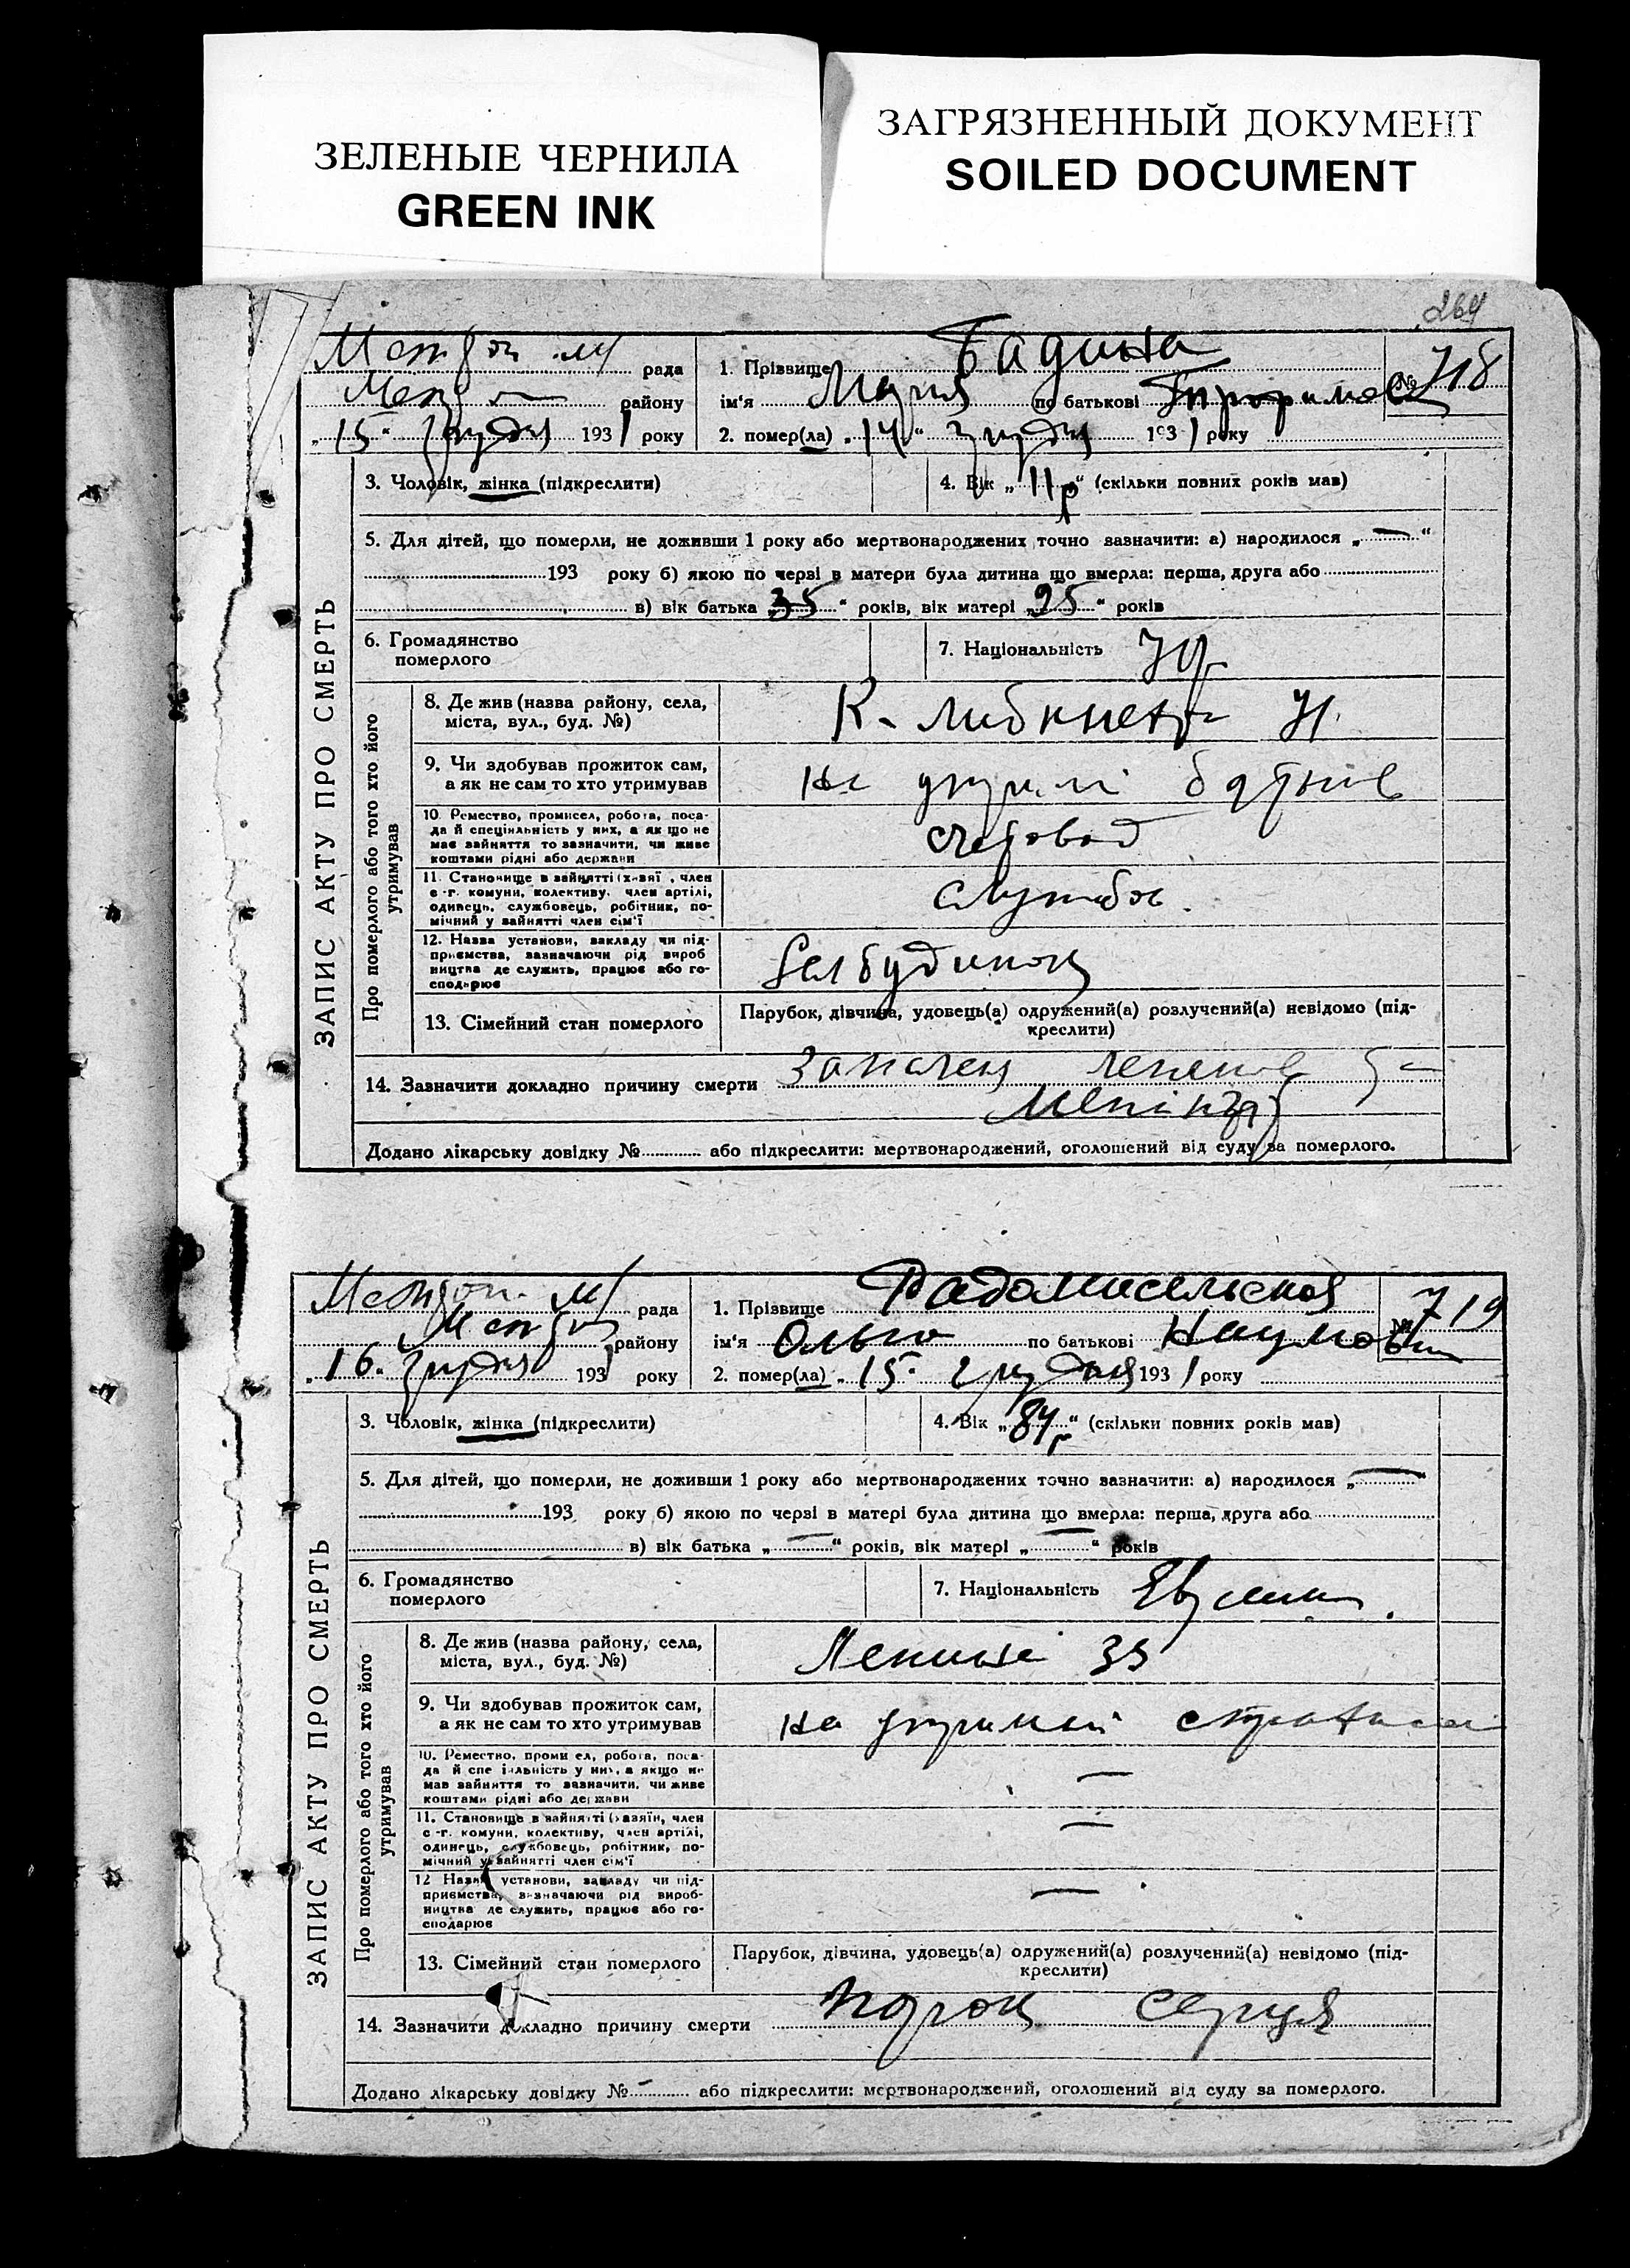 ЗЕЛЕНЫЕ ЧЕРНИЛА
GREEN INK
ЗАГРЯЗНЕННЫЙ ДОКУМЕНТ
SOILED DOCUMENT
264
рада
району
"15" грудня 1931 року
1. Прізвище Бадина
ім'я Мария по батькові
№ 718
2. помер(ла) "14" грудня 1931 року
3. Чоловік, жінка (підкреслити)
4. Вік "11 р" (скільки повних років мав)
5. Для дітей, що померли, не доживши 1 року або мертвонароджених точно зазначити: а) народилося "—"
193 року б) якою по черзі в матери була дитина що вмерла: перша, друга або
в) вік батька "35" років, вік матері "25" років
6. Громадянство
померлого
7. Національність Ук
ЗАПИС АКТУ ПРО СМЕРТЬ
Про померлого або того хто його
утримував
8. Де жив (назва району, села,
міста, вул., буд. №)
К. Либкнехта 71
9. Чи здобував прожиток сам,
а як не сам то хто утримував
на утрим. батьків
10. Ремество, промисел, робота, поса-
да й спеціяльність у них, а як що не
має зайняття то зазначити, чи живе
коштами рідні або держави
счетовод
11. Становище в зайнятті (хазяї, член
с-г. комуни, колективу, член артілі,
одинець, службовець, робітник, по-
мічний у зайнятті член сім'ї
службов.
12. Назва установи, закладу чи під-
приємства, зазначаючи рід вироб
ництва де служить, працює або го-
сподарює
Селбудинок
13. Сімейний стан померлого
Парубок, дівчина, удовець(а) одружений(а) розлучений(а) невідомо (під-
креслити)
14. Зазначити докладно причину смерти
Запален легенів
Менінгіт
Додано лікарську довідку № або підкреслити: мертвонароджений, оголошений від суду за померлого.
рада
району
"16" грудня 1931 року
1. Прізвище Радомисельская
ім'я Ольга по батькові Наумовн
№ 719
2. помер(ла) "15" грудня 1931 року
3. Чоловік, жінка (підкреслити)
4. Вік "84 р" (скільки повних років мав)
5. Для дітей, що померли, не доживши 1 року або мертвонароджених точно зазначити: а) народилося "—"
193 року б) якою по черзі в матері була дитина що вмерла: перша, друга або
в) вік батька "—" років, вік матері "—" років
6. Громадянство
померлого
7. Національність
ЗАПИС АКТУ ПРО СМЕРТЬ
Про померлого або того хто його
утримував
8. Де жив (назва району, села,
міста, вул., буд. №)
Ленина 35
9. Чи здобував прожиток сам,
а як не сам то хто утримував
на
10. Ремество, промисел, робота, поса-
да й спеціяльність у них, а якщо не
мав зайняття то зазначити, чи живе
коштами рідні або держави
—
11. Становище в зайнятті (хазяїн, член
с-г. комуни, колективу, член артілі,
одинець, службовець, робітник, по-
мічний у зайнятті член сім'ї
—
12 Назва установи, закладу чи під-
приємства, зазначаючи рід вироб-
ництва де служить, працює або го-
сподарює
—
13. Сімейний стан померлого
Парубок, дівчина, удовець(а) одружений(а) розлучений(а) невідомо (під-
креслити)
14. Зазначити докладно причину смерти
Порок серця
Додано лікарську довідку № — або підкреслити: мертвонароджений, оголошений від суду за померлого.